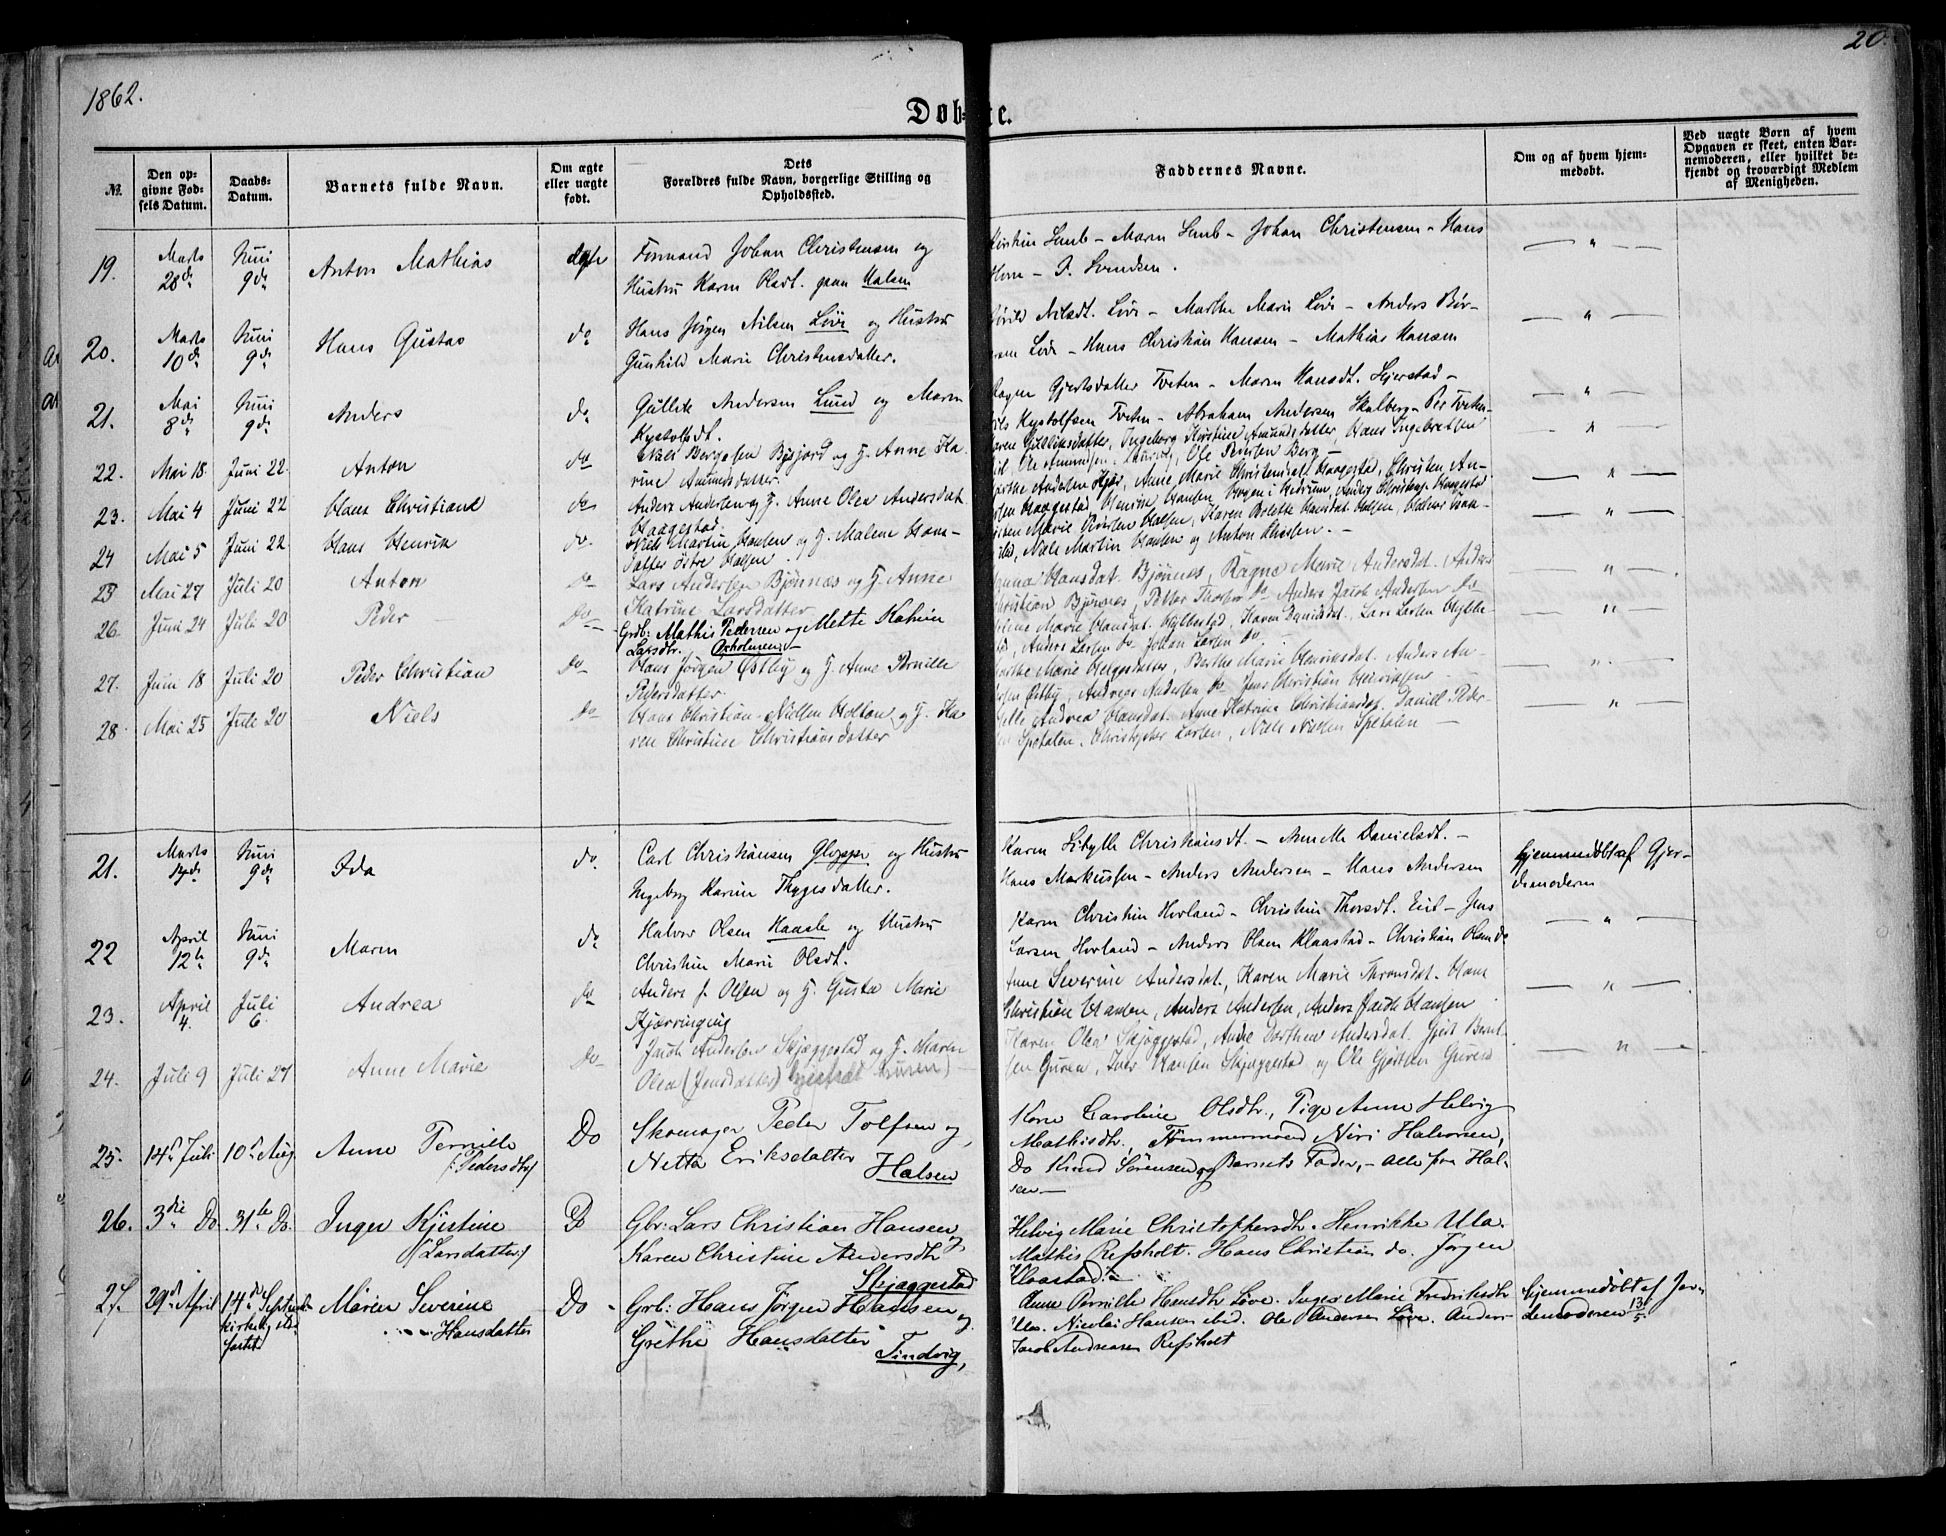 1862.
20.
Døb= te.
№.
Den op-
givne Fød-
sels Datum.
Daabs-
Datum.
Barnets fulde Navn.
Om ægte
eller uægte
født.
Dets
Forældres fulde Navn, borgerlige Stilling og
Opholdssted.
Faddernes Navne.
Om og af hvem hjem-
medøbt.
Ved uægte Børn af hvem
Opgaven er skeet, enten Bar-
nemoderen, eller hvilket be-
kjendt og troværdigt Medlem
af Menigheden.
19. Marts 28de Juni 9de Anton Mathias ægte Formand Johan Christensen og
Hustru Karen Olsdt. paa Halsen
Lamb – Maren Lamb – Johan Christensen – Hans
– P. Svendsen.
20. Marts 10de Juni 9de Hans Gustav do Hans Jørgen Nilsen Løve og Hustru
Gunhild Marie Christensdatter.
Nilsdt. Løve – Marthe Marie Løve – Anders Bør-
sen Løve – Hans Christian Hansen – Mathias Hansen
21. Mai 8de Juni 9de Anders do Gullik Andersen Lund og Maren
Kystolfsdt.
Ragne Gjertsdatter Tveten – Maren Hansdt. Seierstad –
Nils Kystolfsen Tveten – Abraham Andersen Skalberg – Per Tveten –
22. Mai 18 Juni 22. Anton do Niels Børgesen Bjøjord og H. Anne Ka-
rine Amundsdatter.
Maren Gulliksdatter, Ingeborg Kirstine Amundsdatter, Hans Ingebretsen
Ole Amundsen, Ole Pedersen Berg –
23. Mai 4 Juni 22 Hans Christian do Anders Andersen og H. Anne Olea Andersdat.
Haagestad.
Anne Marie Christensdat. Haagestad, Christen An-
dersen Haagestad, Henrik Hansen, Anders Christens. Haagestad
24 Mai 5 Juni 22. Hans Henrik do. Niels Martin Hansen og H. Malene Hans-
datter Østre Halsen.
Marie Halsen, Karen Bolette Hansdat. Halsen, Halvor
Niels Martin Hansen og Anton Thiesen. –
25 Mai 27 Juli 20 Anton do Lars Andersen Bjørnæs og H. Anne
Katrine Larsdatter
Anna Hansdat. Bjørnes, Ragne Marie Andersdat. Anders
Christian Bjørnes, Petter do, Anders Jacob Andersen do
26. Juni 24 Juli 20 Peder Do Grdb: Mathis Pedersen og Mette Katrin
Larsdtr. Oxholmen
Helene Marie Hansdat. Hyllestad, Karen Danielsdat. Lars Larsen Hylle-
stad, Anders Larsen do Johan Larsen do.
27. Juni 18 Juli 20 Peder Christian Do Hans Jørgen Østby og H. Anne Pernille
Pedersdatter
Marthe Marie Helgesdatter, Berthe Marie Henriksdat. Anders An-
dersen Østby, Andreas Andersen do Jens Christian Henriksen
28. Mai 25 Juli 20 Niels Do Hans Christian Nielsen Holtan og H. Ka-
ren Christine Christiansdatter
Andrea Hansdat. Anne Katrine Christiansdat. Daniel Peder-
sen Spetalen. Christopher Larsen, Niels Nielsen Spetalen –
21. Marts Juni 9de Ida do. Carl Christiansen Gloppe og Hustru
Ingeborg Karine Thygesdatter.
Karen Sibylle Christiansdt. – Annette Danielsdt. –
Hans Markussen – Anders Andersen – Hans Andersen
Hjemmedøbt af Gjor-
demoderen
22 April 12te Juni 9de Maren do Halvor Olsen Haasle og Hustru
Christine Marie Olsdt.
Karen Christine Hovland – Christine Thorsdt. Eie – Jens
Larsen Hovland – Anders Olsen Klaastad – Christian Olsen do
23. April 4. Juli 6. Andrea do Anders J. Olsen og H. Gusta Marie
Kjærringvig
Anne Severine Andersdat., Karen Marie Thronsdat. Hans
Christian Hansen, Anders Andersen, Anders Jacob Hansen
24. Juli 9 Juli 27 Anne Marie Do Jacob Andersen Skjæggestad og H. Maren
Olea (Jensdatter)
Karen Olea Skjæggestad, Anne Dorthea Andersdat. Gjert Bernt-
sen Guren, Iver Hansen Skjæggestad og Ole Gjertsen Guren
25. 14de Juli 10de Aug Anne Pernille
(Pedersdtr) Do Skomager Peder Tolfsen og
Netta Eriksdatter Halsen
Kone Caroline Olsdtr., Pige Anne Helvig
Mathisdtr, Tømmermænd Niri Halvorsen,
Do Knud Sørensen og Barnets Fader, – alle fra Hal-
sen –
26. 3die Do 31te Do. Inger Kjestine
(Larsdatter) Do Gbr: Lars Christian Hansen og
Karen Christine Andersdtr
Skjæggestad
Helvig Marie Christophersdtr. Henrikke Ula.
Mathis Refsholt. Hans Christian do. Jørgen
Klaastad.
27. 29de April 14de Septembr
kirkelig stad-
fæstet Maren Severine
Hansdatter Do Grb: Hans Jørgen Hansen og
Grethe Hansdatter Tindvig,
Anne Pernille Hansdtr Løve. Inger Marie Fredriksdtr
Ula. Nicolai Hansen ibid. Ole Andersen Løve. Anders
Jacob Andreasen Refsholt
Hjemmedøbt af Jor-
demoderen 13/5.